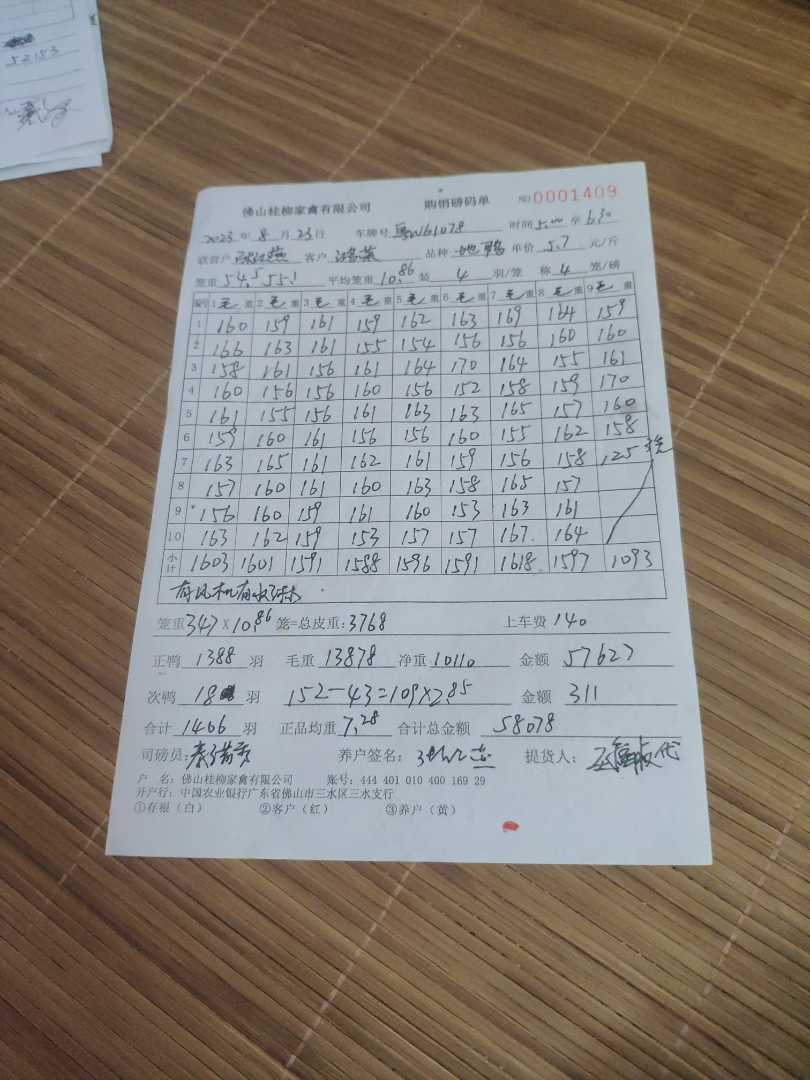 52153
佛山桂柳家禽有限公司 购销磅码单 NO 0001409
2023年8月23日 车牌号 粤W61078 时间 5:00 至 6:30
客户 鸿荣 品种 地鸭 单价 5.7 元/斤
笼重 54.5 55.1 平均笼重 10.86 装 4 羽/笼 称 4 笼/磅
编号 1 毛 重 2 毛 重 3 毛 重 4 毛 重 5 毛 重 6 毛 重 7 毛 重 8 毛 重 9 毛 重
1 160 159 161 159 162 163 169 164 159
2 166 163 161 155 154 156 156 160 160
3 158 161 156 161 164 170 164 155 161
4 160 156 156 160 156 152 158 159 170
5 161 155 156 161 163 163 165 157 160
6 159 160 161 156 156 160 155 162 158
7 163 165 161 162 161 159 156 158 125
8 157 160 161 160 163 158 165 157
9 156 160 159 161 160 153 163 161
10 163 162 159 153 157 157 167 164
小计 1603 1601 1591 1588 1596 1591 1618 1597 1093
有风机有水淋
笼重 347 X 10.86 笼=总皮重:3768 上车费 140
正鸭 1388 羽 毛重 13878 净重 10110 金额 57627
次鸭 18 羽 152-43=109×2.85 金额 311
合计 1406 羽 正品均重 7.28 合计总金额 58078
司磅员: 养户签名: 提货人:
户 名:佛山桂柳家禽有限公司 账号:444 401 010 400 169 29
开户行:中国农业银行广东省佛山市三水区三水支行
①存根(白) ②客户(红) ③养户(黄)